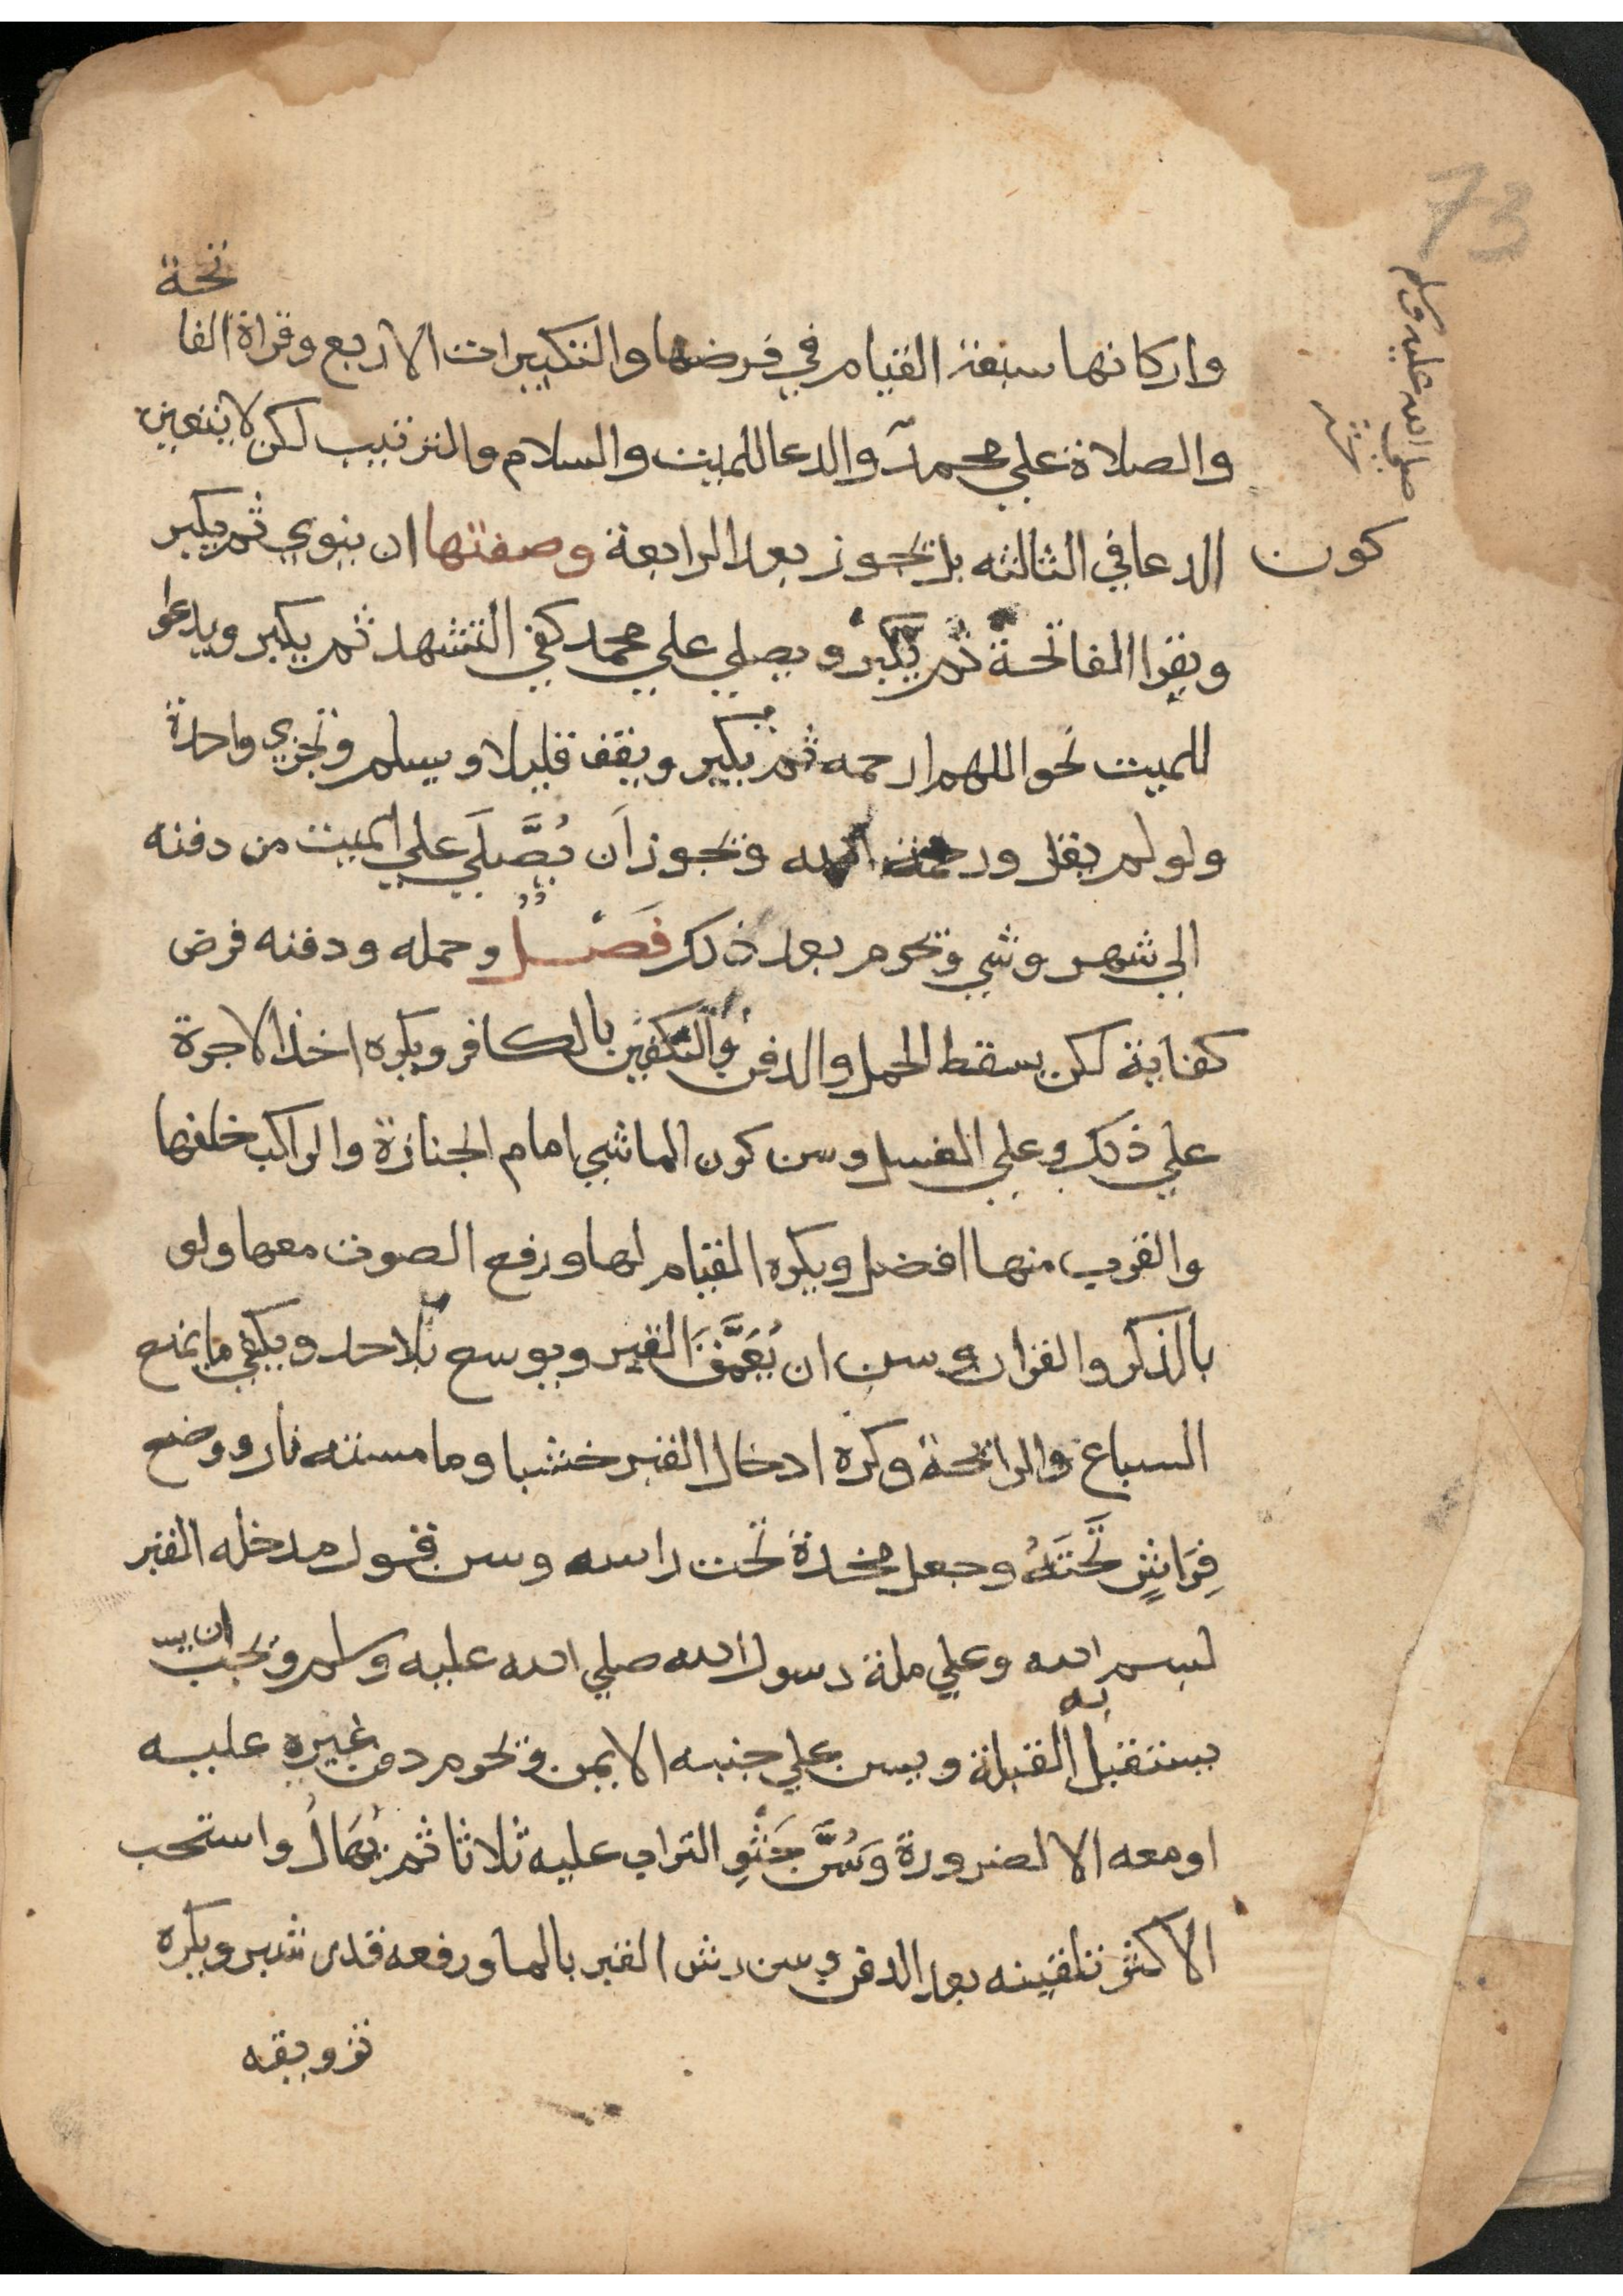 73
صلى الله عليه وسلم
نحة
واركانها سبعة القيام في فرضها والتكبيرات الاربع وقراة الفا
والصلاة علي محمد والدعا للميت والسلام والترتيب لكن لا يتعين
كون الدعا في الثالثه بل تجوز بعد الرابعة وصفتها ان ينوي ثم يكبر
ويقرا الفاتحة ثم يكبر ويصلي علي محمد كفي التشهد ثم يكبر ويدعوا
للميت نحو اللهم ارحمه ثم يكبر ويقف قليلا ويسلم وتجزي واحدة
ولو لم يقل ورحمة الله وتجوز اَن يُصَّلَي علي الميت من دفنه
الي شهر وشي وتحرم بعد ذلك فَصْلٌ وحمله ودفنه فرض
كفاية لكن يسقط الحمل والدفن والتكفين بالكافر ويكره اخذ الاجرة
علي ذلك وعلي الغسل وسن كون الماشي امام الجنازة والراكب خلفها
والقرب منها افضل ويكره القيام لها ورفع الصوت معها ولو
بالذكر والقران وسن ان يُعَمَّقَ القبر ويوسع بلا حد ويكفي ما يمنع
السباع والرائحة وكره ادخال القبر خشبا وما مسته نار ووضع
فِرَاشٍ تَحتَهُ وجعل مخدة تحت راسه وسن قول مدخله القبر
بسم الله وعلي ملة رسول الله صلي الله عليه وسلم ويجب ان يس
يستقبل به القبلة ويسن علي جنبه الايمن وتحرم دفن غيره عليه
او معه الا لضرورة وَسُنَّ حَثْوِ التراب عليه ثلاثا ثم يُهَالُ واستحب
الاكثر تلقينه بعد الدفن وسن رش القبر بالما ورفعه قدر شبر ويكره
تزويقه